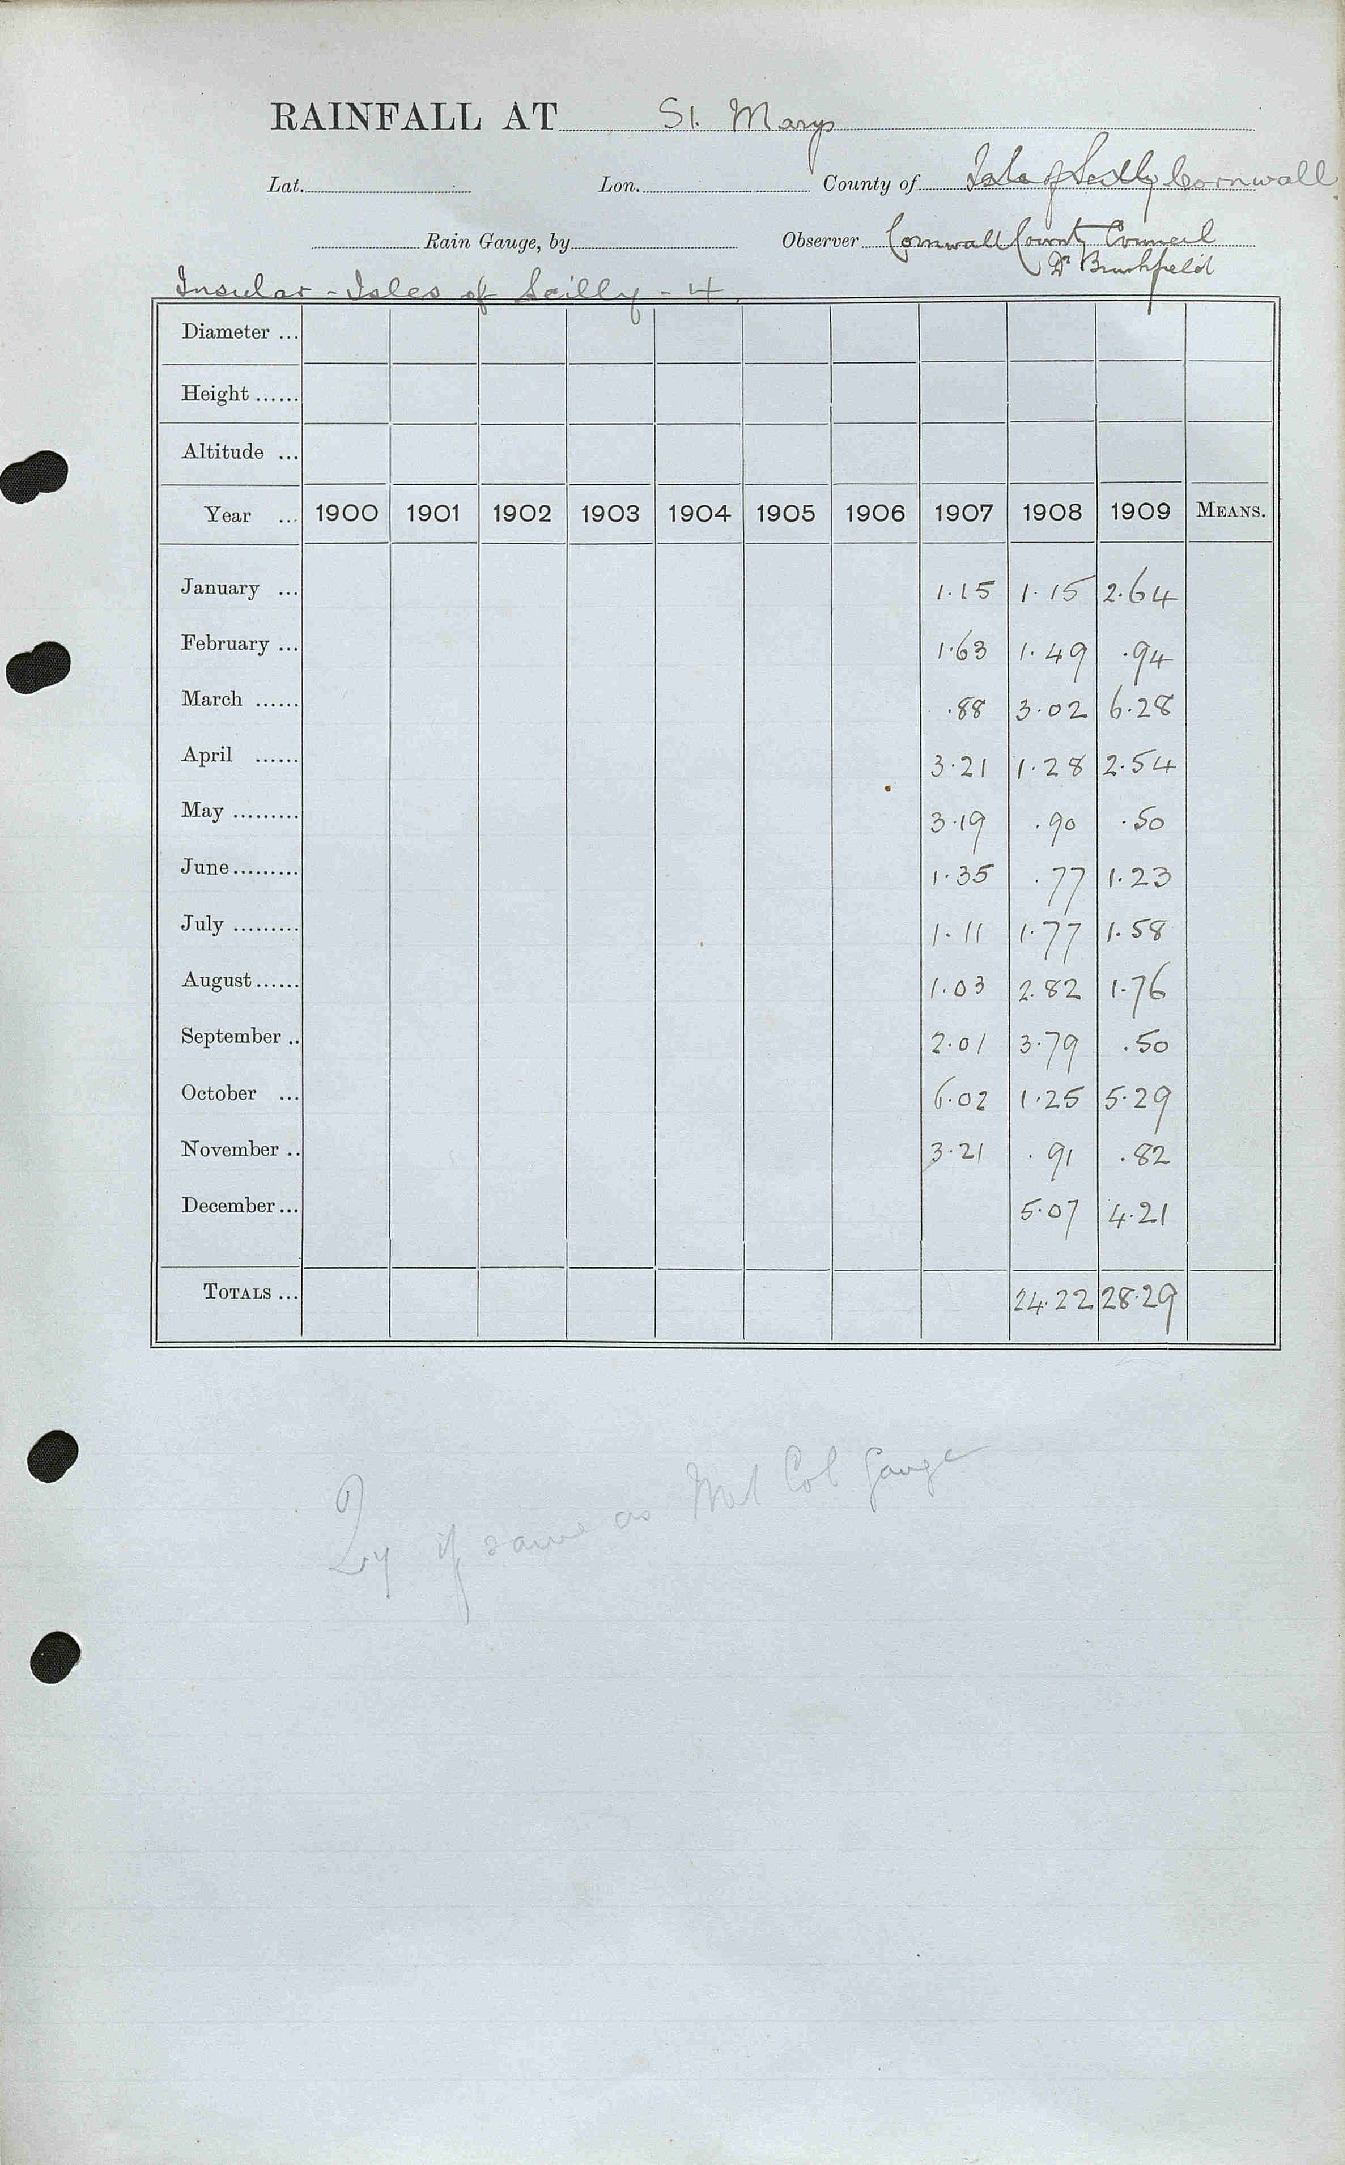 RAINFALL AT St. Marys
Lat. Lon. County of Isle of Scilly Cornwall
Rain Gauge, by Observer Cornwall County Council
Dr Brushfield
Insular - Isles of Scilly - 4
Diameter ...
Height ......
Altitude ...
Year ... 1900 1901 1902 1903 1904 1905 1906 1907 1908 1909 MEANS.
January ... 1.15 1.15 2.64
February ... 1.63 1.49 .94
March ...... .88 3.02 6.28
April ...... 3.21 1.28 2.54
May ......... 3.19 .90 .50
June ......... 1.35 .77 1.23
July ......... 1.11 1.77 1.58
August ...... 1.03 2.82 1.76
September .. 2.01 3.79 .50
October ... 6.02 1.25 5.29
November .. 3.21 .91 .82
December ... 5.07 4.21
TOTALS ... 24.22 28.29
Qy if same as Met Col Gauge